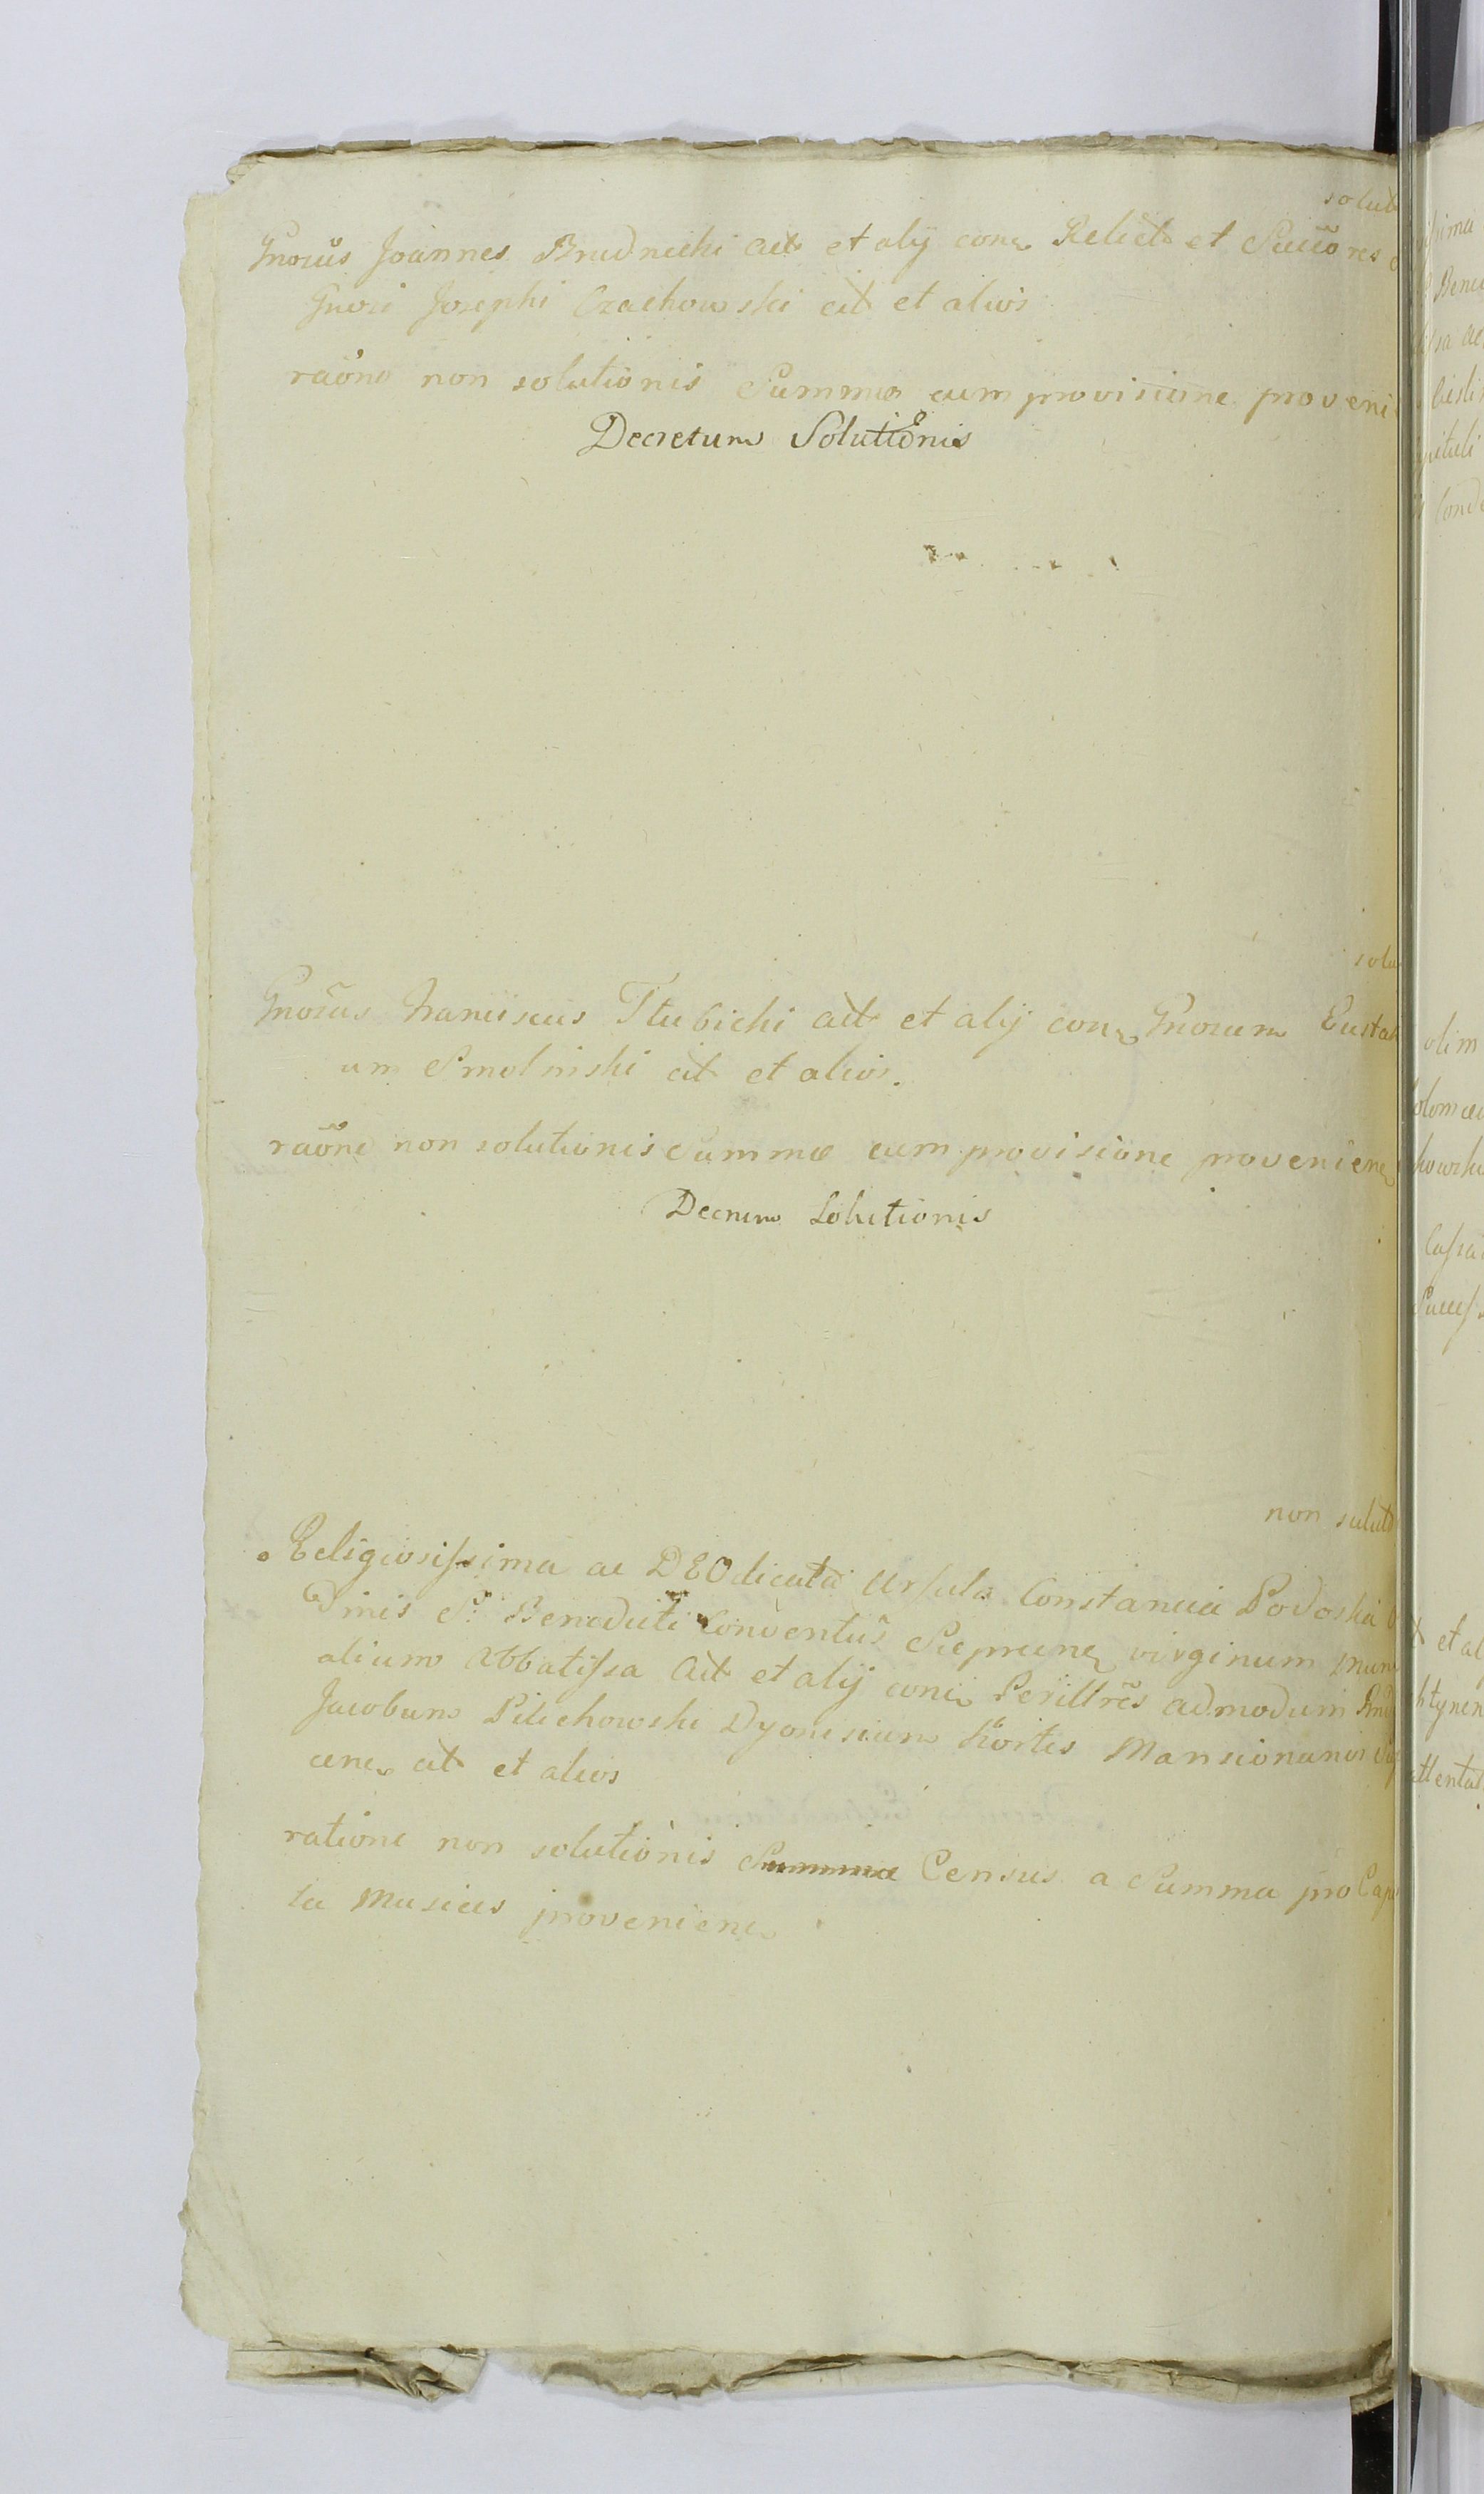 solut
Gnosus Joannes Brudnicki act et alij conq Relict et Succores
Gnosi Josephi Czachowski cit et alios
raone non solutionis Summæ cum provisione proveni
Decretum Solutionis
solu
Gnosus Franciscus Tlubicki act et alij conq Gnosum Eustah
um Smolinski cit et alios.
raone non solutionis Summæ cum provisione provenienq
Decrum Solutionis
non solut
Religiosissima ac DEO dicata Ursula Constancia Podoska
Dinis S: Benedicti Conventus virginum
alium Abbatissa act et alij conq Perillres admodum
Jacobum Pilichowski Dyonisium Mansionarios
cenq cit et alios
ratione non solutionis Summa Census a Summa pro Cap
la Musices provenienq